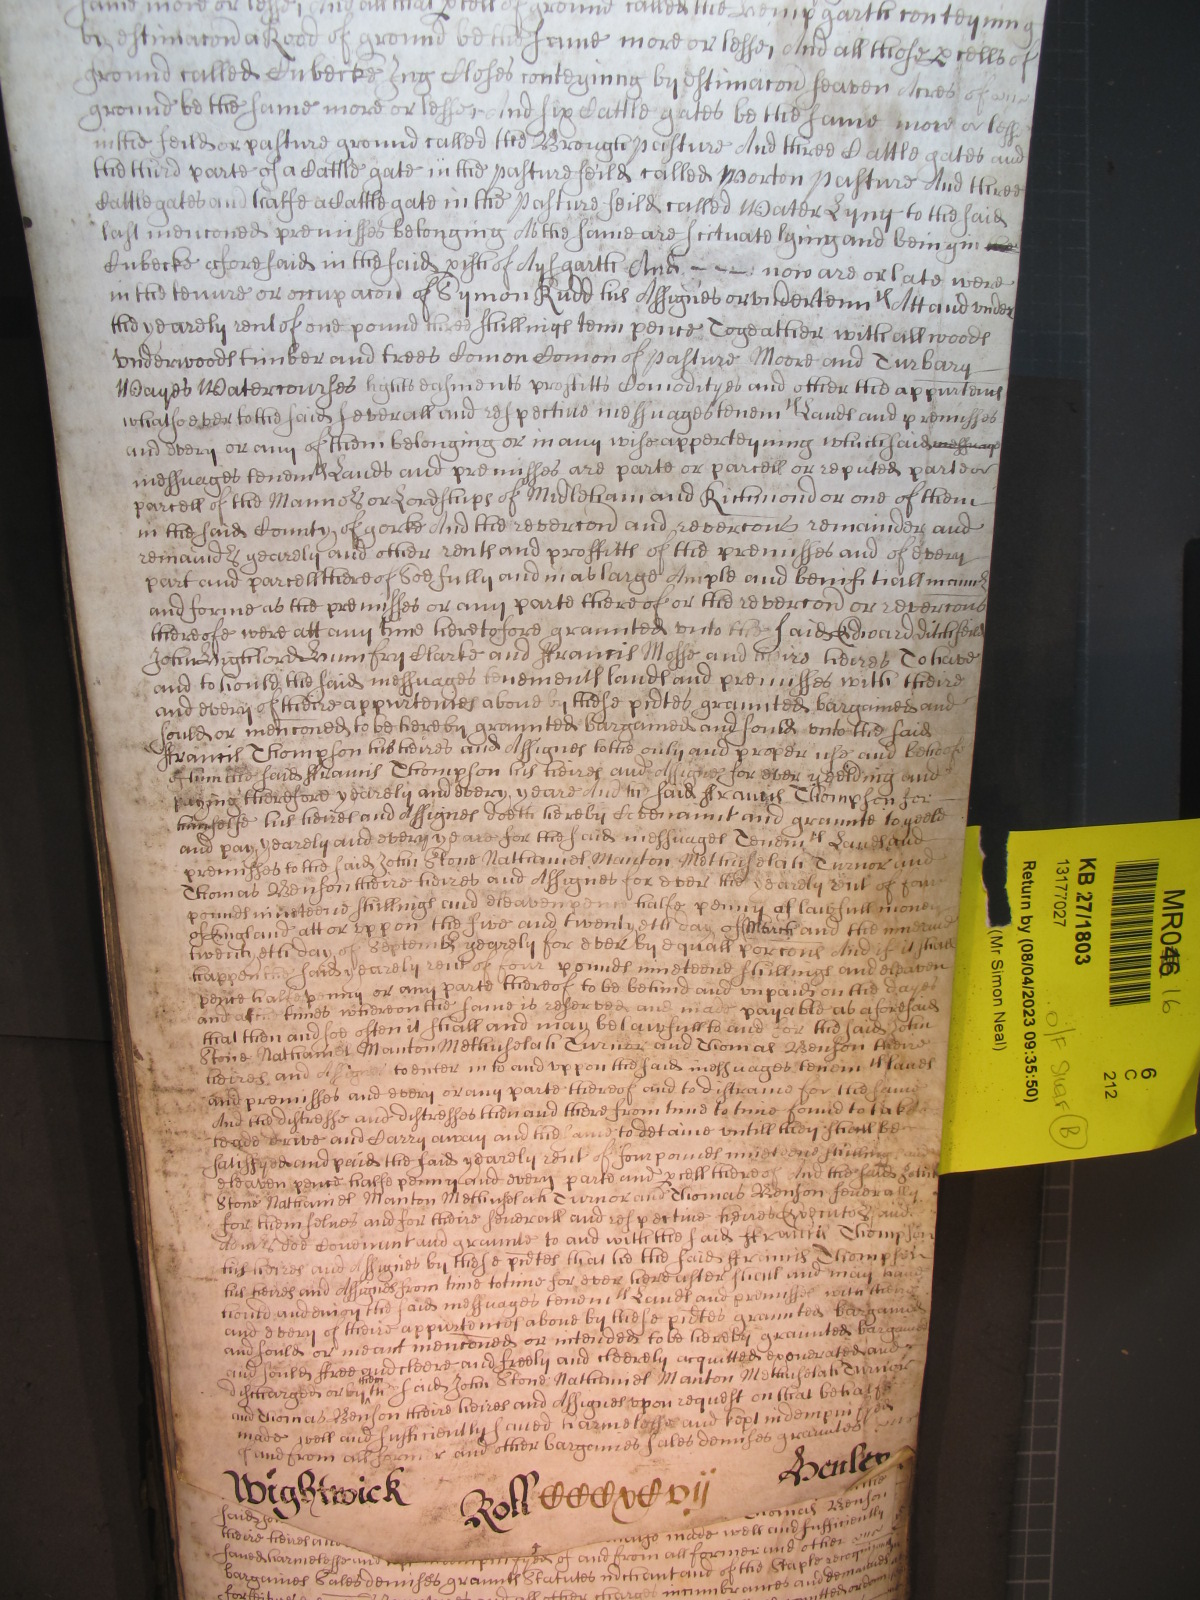 same more or lesse, And all that pcell of ground called the Kempgarth conteyning
by estimacon a Rood of ground be the same more or lesse, And all those pcells of
ground called Cubecke Ing Closes conteyning by estimacon seaven Acres of
ground be the same more or lesse, And six Cattle gates be the same more or lesse
in the feild or pasture ground called the Brough Pasture And three Cattle gates and
the third parte of a Cattle gate in the pasture feild called Worton Pasture And three
Cattle gates and halfe a Cattle gate in the Pasture feild called Water Lyng to the said
last menconed premisses belonging As the same are scituate lying and being in
Cubecke aforesaid in the said pish of Aysgarth And - - - now are or late were
in the tenure or occupacon of Symon Rudd his Assignes or undertenn^ts Att and under
the yearely rent of one pound three shillings tenn pence Togeather with all woods
underwoods timber and trees Comon Comon of pasture Moore and Turbary
Wayes Watercourses lights easments proffitts Comodityes and other the appurtenns
whatsoever to the said severall and respective messuages tenem^ts Lands and premisses
and every or any of them belonging or in any wise apperteyning which said messuage
messuages tenem^ts Lands and premisses are parte or parcell or reputed parte or
parcell of the Mannors or Lordships of Midleham and Richmond or one of them
in the said County of Yorke And the revercon and revercons remainder and
remainders yearely and other rents and proffitts of the premisses and of every
part and parcell thereof Soe fully and in as large Ample and benificiall manner
and forme as the premisses or any parte thereof or the revercon or revercons
thereofe were att any time heretofore graunted unto the said Edward Ditchfeild
John Highlord Humfry Clarke and Francis Mosse and theire heires To have
and to hould the said messuages tenements lands and premisses with theire
and every of theire appurtences above by these psents graunted bargained and
sould or menconed to be hereby graunted bargained and sould unto the said
Francis Thompson his heires and Assignes to the only and proper use and behoofe
of him the said Francis Thompson his heires and Assignes for ever yeelding and
paying therefore yearely and every yeare And the said Francis Thompson for
himselfe his heires and Assignes doeth hereby covenaunt and graunte to yeeld
and pay yearely and every yeare for the said messuages Tenem^ts Lands and
premisses to the said John Stone Nathaniel Manton Methuselah Turnor and
Thomas Benson theire heires and Assignes for ever the yearely rent of four
pounds nineteene shillings and eleaven pence halfe penny of lawfull money
of England att or uppon the five and twentyeth day of March and the nine and
twentyeth day of September yearely for ever by equall porcons And if it shall
happen the said yearely rent of four pounds nineteene shillings and eleaven
pence halfe penny or any parte thereof to be behind and unpaid on the dayes
and att the times whereon the same is reserved and made payable as aforesaid
that then and soe often it shall and may be lawfull to and for the said John
Stone Nathaniel Manton Methuselah Turnor and Thomas Benson theire
heires and Assignes to enter in to and uppon the said messuages tenem^ts lands
and premisses and every or any parte thereof and to distraine for the same
And the distresse and distresses then and there from time to time found to take
leade drive and Carry away and the same to detaine untill they shall be
satisfyed and paid the said yearely rent of four pounds nineteene shillings and
eleaven pence halfe penny and every parte and pcell thereof And the said John
Stone Nathaniel Manton Methuselah Turnor and Thomas Benson severally
for themselves and for theire severall and respective heires Executors and
doe Covennut and graunte to and with the said Francis Thompson
his heires and Assignes by these psents that he the said Francis Thompson
his heires and Assignes from time to time for ever hereafter shall and may have
hould and enjoy the said messuages tenem^ts Lands and premisses with theire
and every of theire appurtences above by these psents graunted bargained
and sould or meant menconed or intended to be hereby graunted bargained
and sould free and cleere and freely and cleerely acquitted exonerated and
discharged or by them the said John Stone Nathaniel Manton Methuselah Turnor
and Thomas Benson theire heires and Assignes upon request on that behalfe
made well and sufficiently saved harmelesse and kept indempnifyed
and from all former and other bargaines sales demises graunts
Wightwick
Roll CCCXCVij
Henley
said
Thomas Benson
theire heires and made well and sufficiently
saved harmelesse and of and from all former and other
bargaines Sales demises graunts Statutes merchant and of the Staple recognizances
and all other charges incumbrances and demaunds
MR046 16
KB 27/1803
13177027
Return by (08/04/2023 09:35:50)
(Mr Simon Neal)
6
C
212
O/F
B